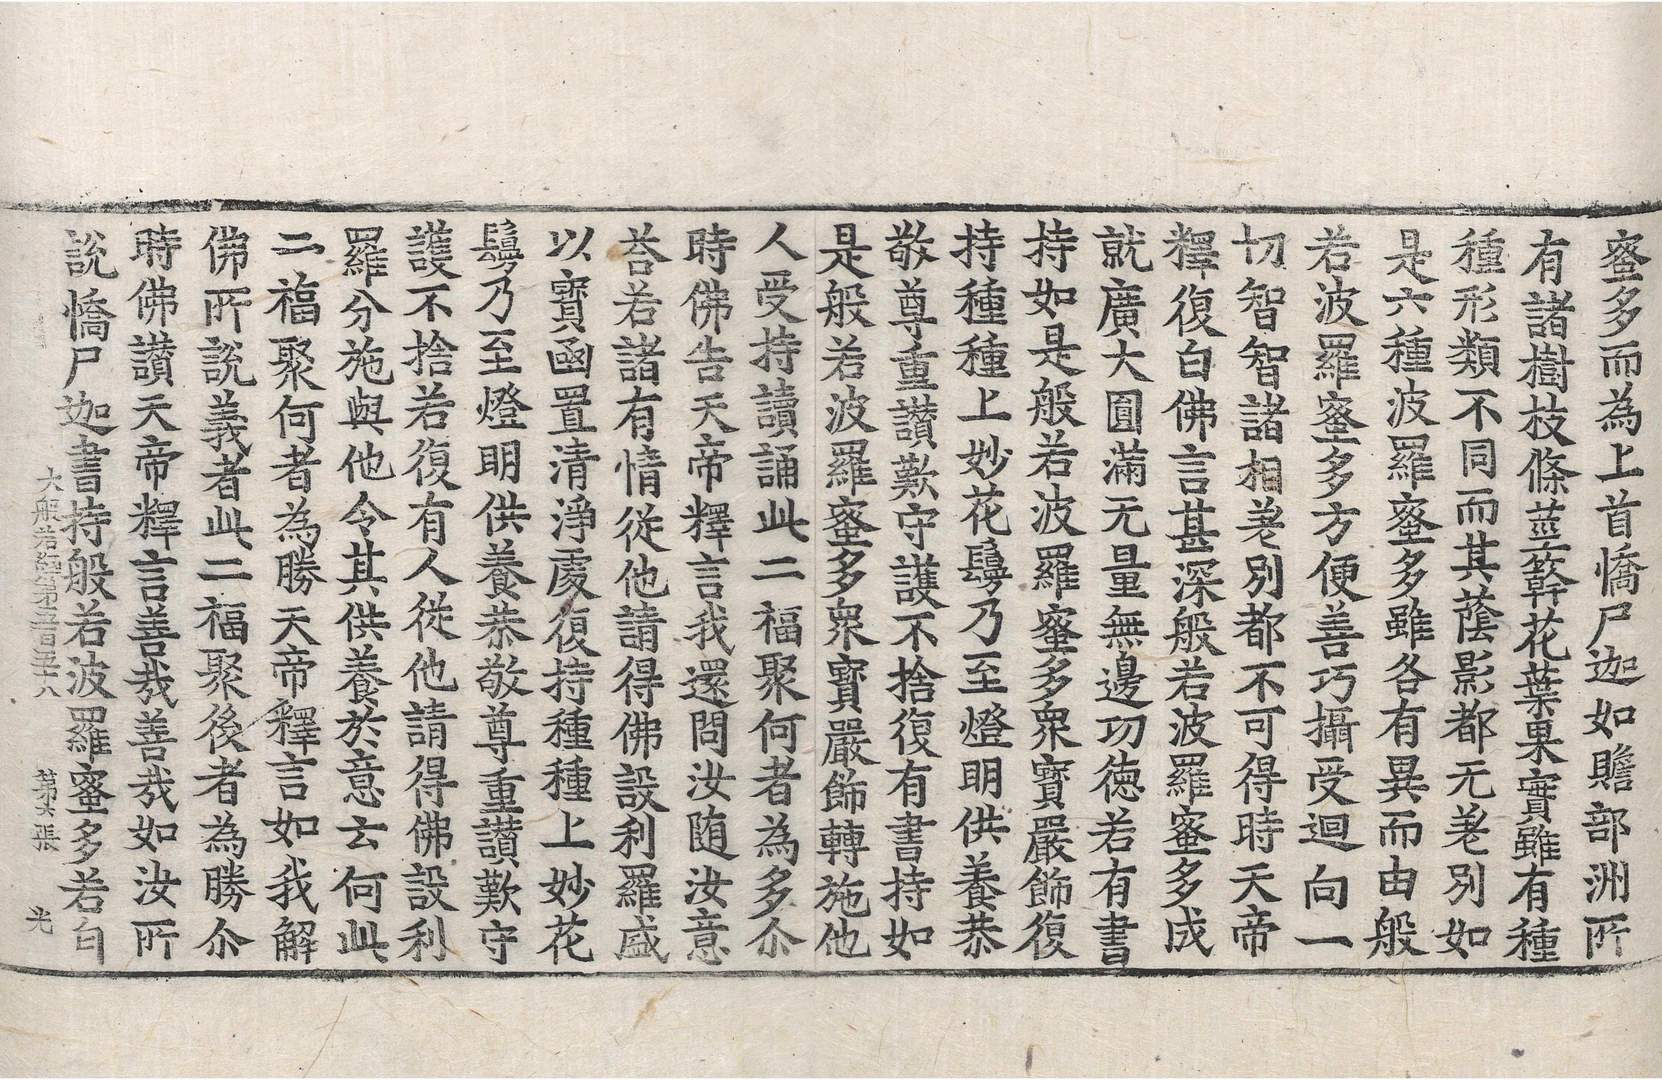 蜜多而為上首憍尸迦如贍部洲所
有諸樹枝條莖幹花葉果實雖有種
種形類不同而其蔭影都无差別如
是六種波羅蜜多雖各有異而由般
若波羅蜜多方便善巧攝受迴向一
切智智諸相差別都不可得時天帝
釋復白佛言甚深般若波羅蜜多成
就廣大圓滿无量無邊功德若有書
持如是般若波羅蜜多衆寶嚴飾復
持種種上妙花鬘乃至燈明供養恭
敬尊重讃歎守護不捨復有書持如
是般若波羅蜜多衆寶嚴飾轉施他
人受持讀誦此二福聚何者為多尒
時佛告天帝釋言我還問汝随汝意
荅若諸有情從他請得佛設利羅盛
以寶函置清淨處復持種種上妙花
鬘乃至燈明供養恭敬尊重讃歎守
護不捨若復有人從他請得佛設利
羅分施與他令其供養於意云何此
二福聚何者為勝天帝釋言如我解
佛所説義者此二福聚後者為勝尒
時佛讃天帝釋言善哉善哉如汝所
説憍尸迦書持般若波羅蜜多若自
大般若經第五百五十八 第六張 光